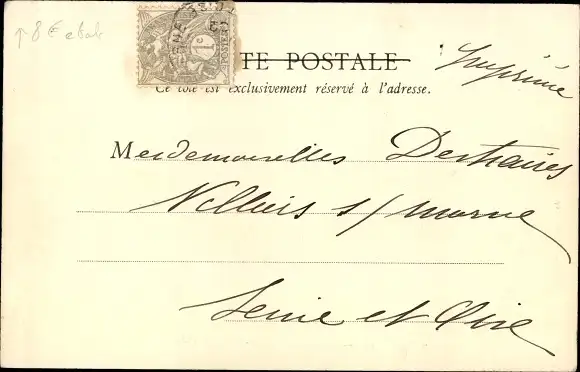 8 €
TE POSTALE
Imprimé
Ce côté est exclusivement réservé à l'adresse.
Mesdemoiselles
Villiers s/ Marne
Seine et Oise